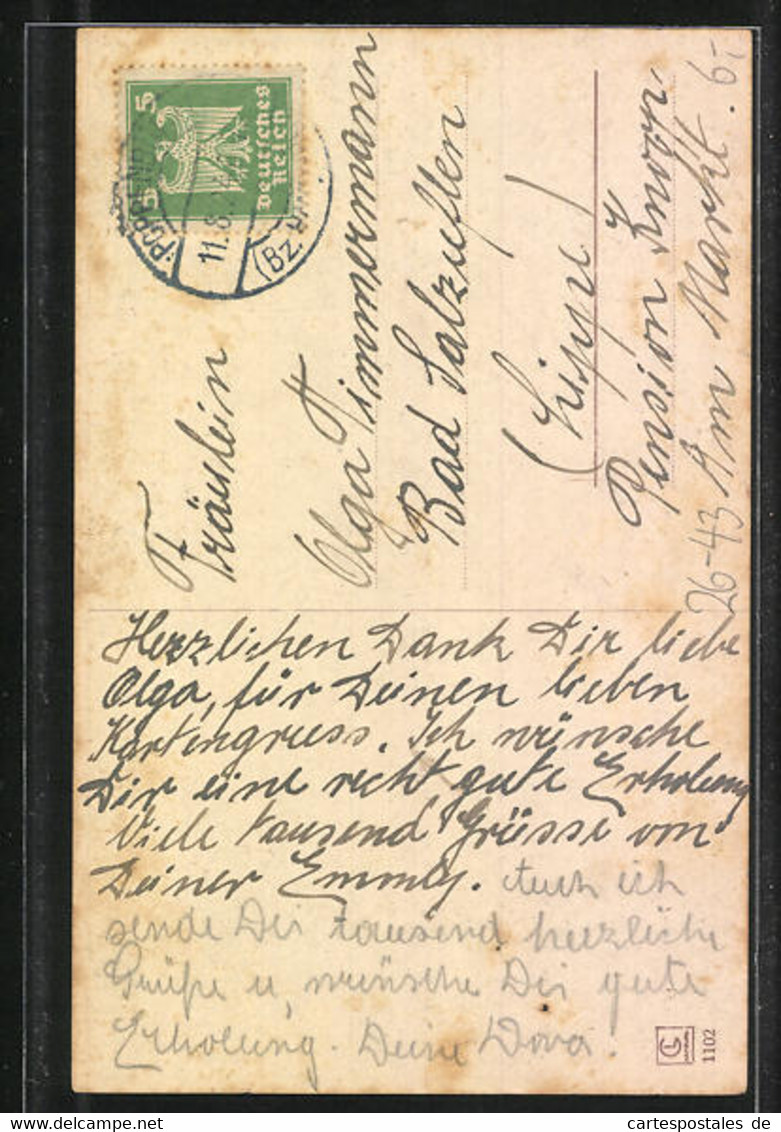 5 5
Deutsches
Reich
11.8.
(Bz.
Fräulein
Olga Timmermann
Bad Salzuflen
(Lippe)
Pension Knorn
Am Markt. 6,-
26-43
Herzlichen Dank Dir liebe
Olga, für Deinen lieben
Kartengruss. Ich wünsche
Dir eine recht gute Erholung
Viele tausend Grüsse von
Deiner Emmy. Auch ich
sende Dir tausend herzliche
Grüße u. wünsche Dir gute
Erholung. Deine Dora.
G
1102
www.delcampe.net
cartespostales de